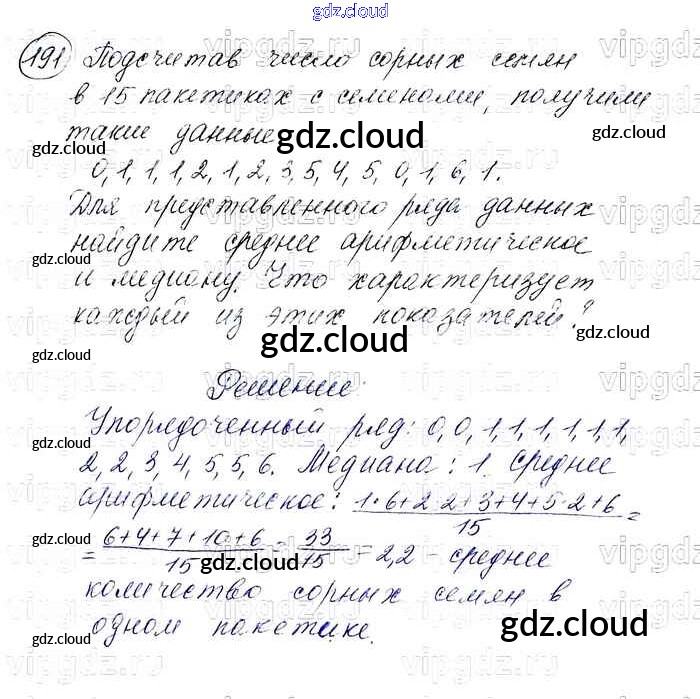 gdz.cloud
191. Подсчитав число сорных семян
в 15 пакетиках с семенами, получили
такие данные
gdz.cloud
0, 1, 1, 1, 2, 1, 2, 3, 5, 4, 5, 0, 1, 6, 1.
Для представленного ряда данных
найдите среднее арифметическое
и медиану. Что характеризует
каждый из этих показателей?
gdz.cloud
Решение:
Упорядоченный ряд: 0, 0, 1, 1, 1, 1, 1, 1,
2, 2, 3, 4, 5, 5, 6. Медиана: 1. Среднее
арифметическое: (1·6+2·2+3+4+5·2+6)/15 =
= (6+4+7+10+6)/15 = 33/15 = 2,2 - среднее
количество сорных семян в
одном пакетике.
gdz.cloud